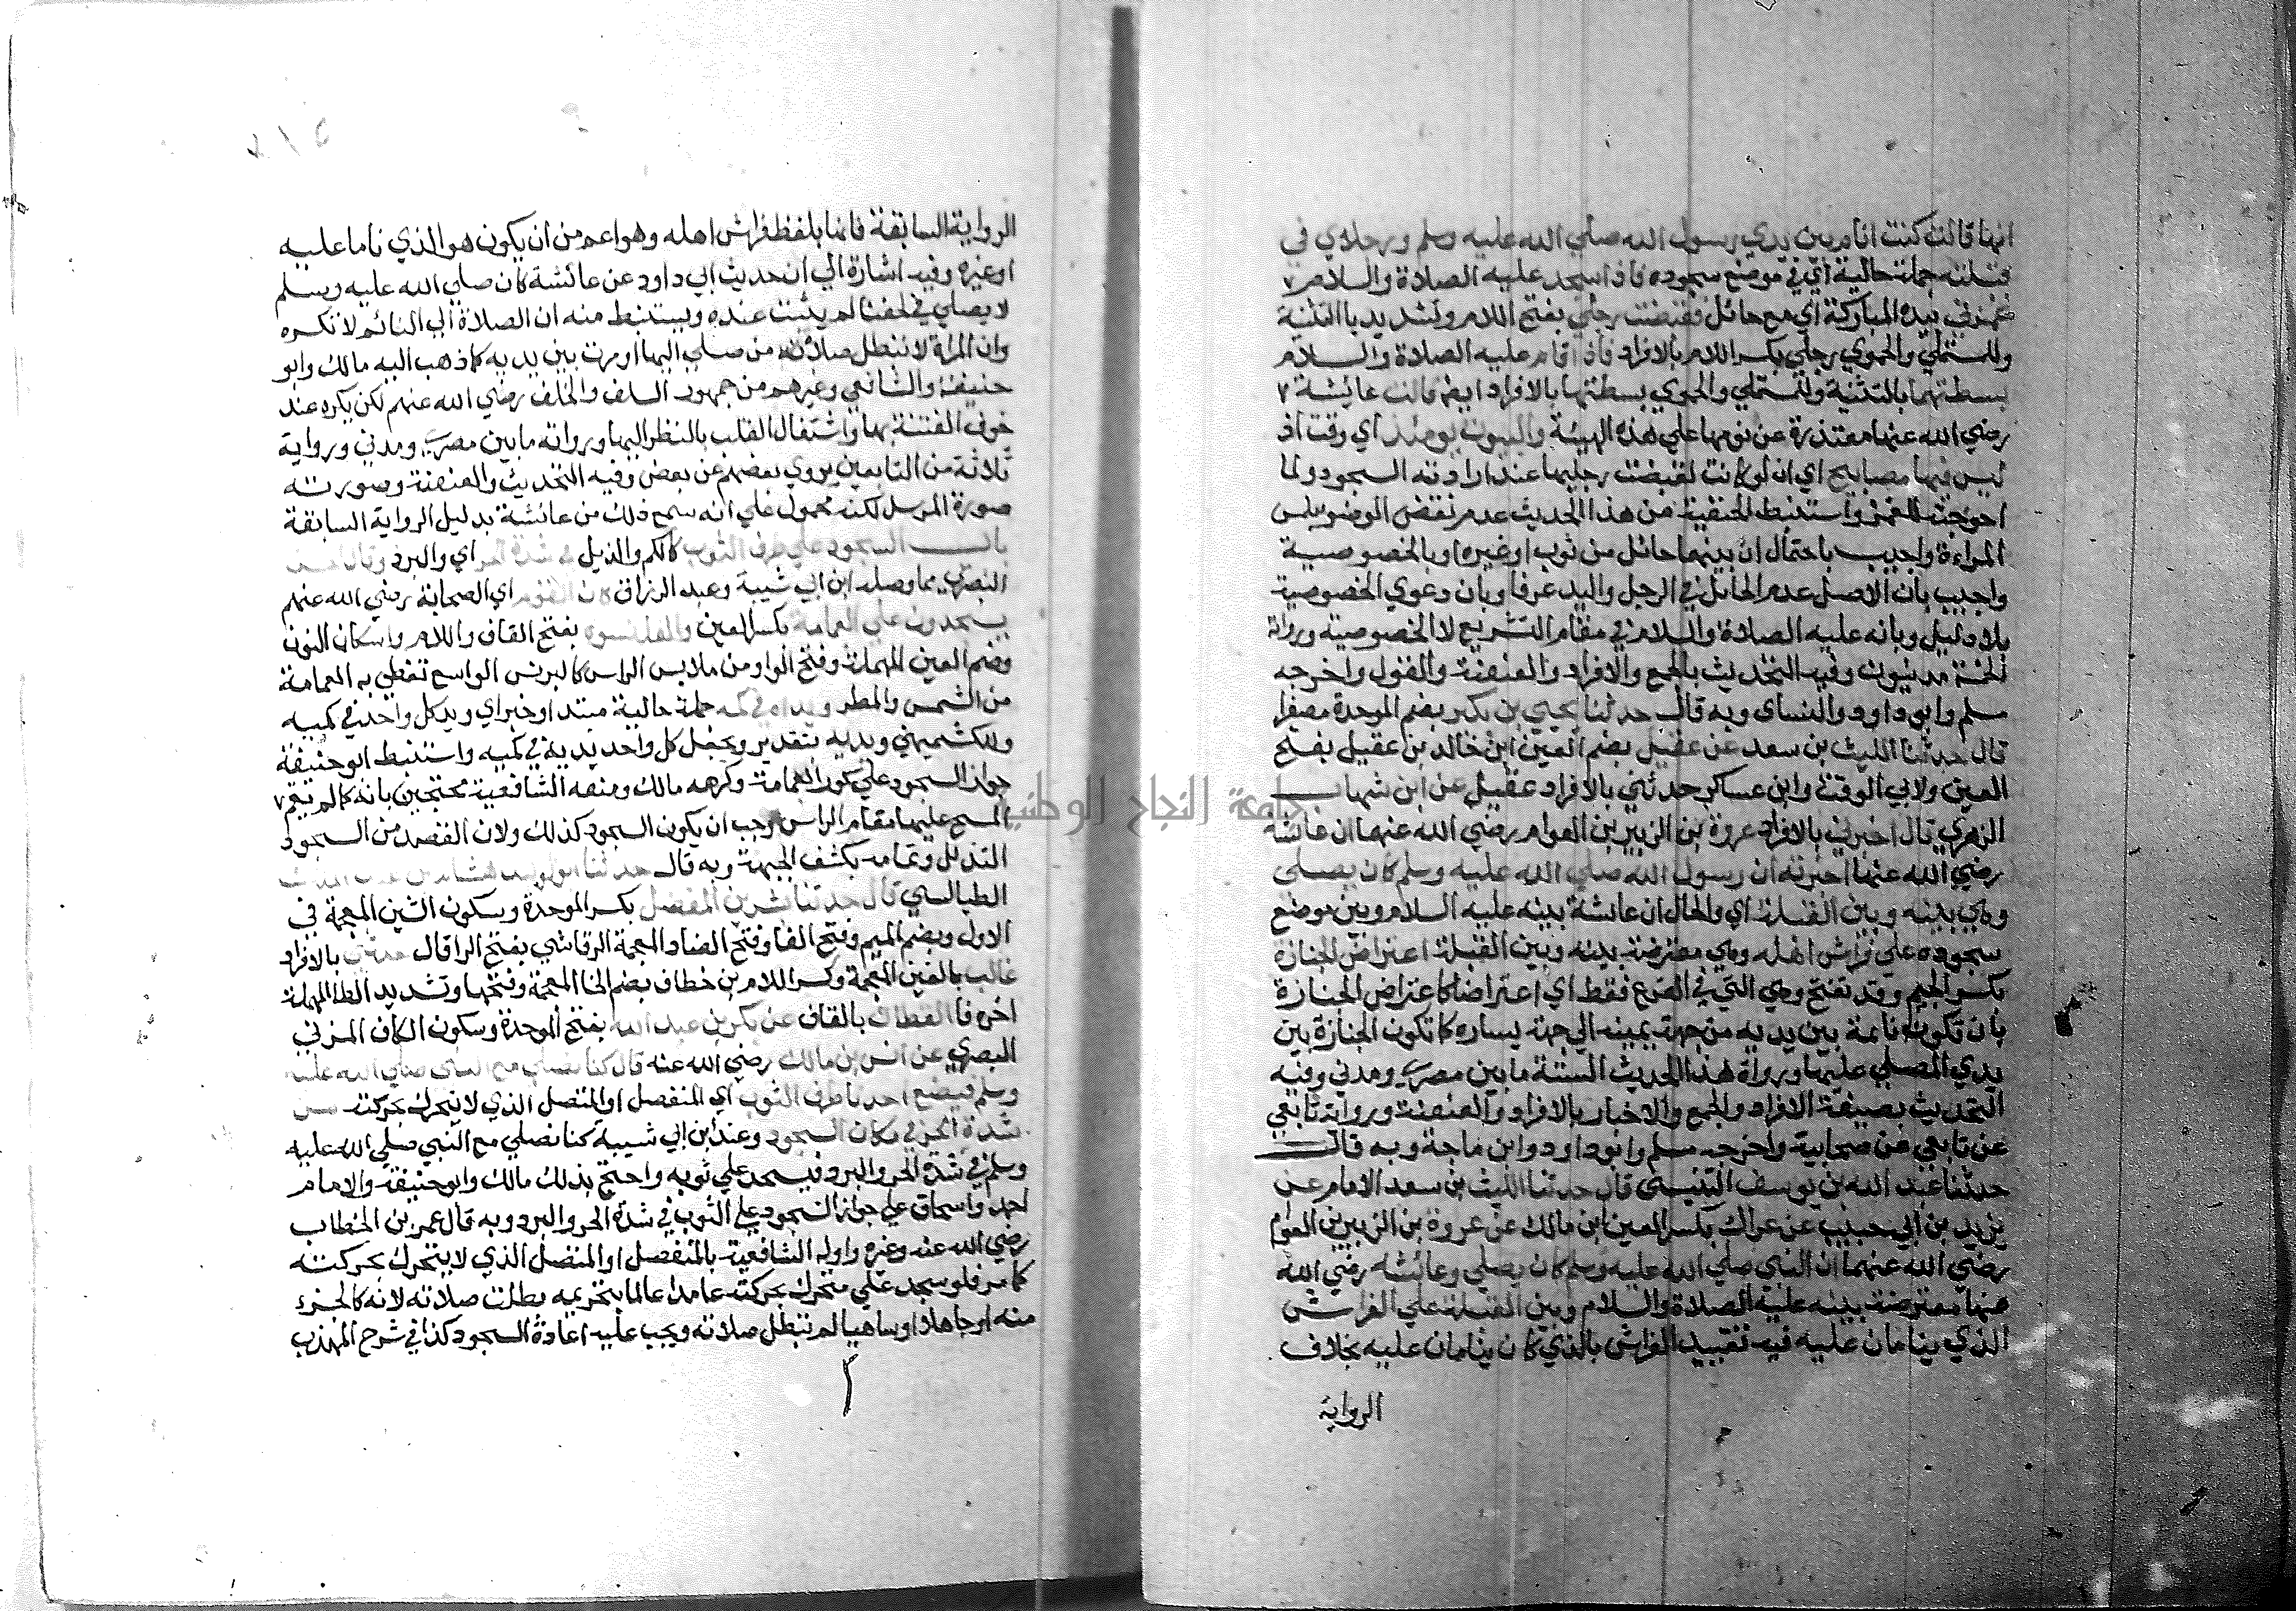 انها قالت كنت انام بين يدي رسول الله صلي الله عليه وسلم ورجلاي في
قبلته جملة حالية اي في موضع سجوده فاذا سجد عليه الصلاة والسلام
غمزني بيده المباركة اي مع حائل فقبضت رجلي بفتح اللام وتشديد يا التثنية
وللمستملي والحموي رجلي بكسر اللام بالافراد فاذا قام عليه الصلاة والسلام
بسطتهما بالتثنية وللمستملي والحموي بسطتها بالافراد ايضا قالت عائشة
رضي الله عنها معتذرة عن نومها علي هذه الهيئة والبيوت يومئذ اي وقت اذ
ليس فيها مصابيح اي ان لو كانت لقبضت رجليها عند ارادته السجود ولما
احوجته للغمز واستنبط الحنفية من هذا الحديث عدم نقض الوضو بلمس
المراءة واجيب باحتمال ان بينهما حائل من ثوب او غيره او بالخصوصية
واجيب بان الاصل عدم الحائل في الرجل واليد عرفا وبان دعوي الخصوصية
بلا دليل وبانه عليه الصلاة والسلام في مقام التشريع لا الخصوصية ورواة
الخمسة مدنيون وفيه التحديث بالجمع والافراد والعنعنة والقول واخرجه
مسلم وابو داود والنساى وبه قال حدثنا يحيي بن بكير بضم الموحدة مصغرا
قال حدثنا الليث بن سعد عن عقيل بضم العين ابن خالد بن عقيل بفتح
العين ولابي الوقت وابن عساكر حدثني بالافراد عقيل عن ابن شهاب
الزهري قال اخبرني بالافراد عروة بن الزبير بن العوام رضي الله عنهما ان عائشة
رضي الله عنها اخبرته ان رسول الله صلي الله عليه وسلم كان يصلى
وهي بينه وبين القبلة اي والحال ان عائشة بينه عليه السلام وبين موضع
سجوده علي فراش اهله وهي معترضة بينه وبين القبلة اعتراض الجنازة
بكسر الجيم وقد تفتح وهي التي في الفرع فقط اي اعتراضا كاعتراض الجنازة
بان تكون نائمة بين يديه من جهة يمينه الي جهة يساره كما تكون الجنازة بين
يدي المصلي عليها ورواة هذا الحديث الستة ما بين مصري ومدني وفيه
التحديث بصيغة الافراد والجمع والاخبار بالافراد والعنعنة ورواية تابعي
عن تابعي عن صحابية واخرجه مسلم وابو داود وابن ماجة وبه قال
حدثنا عبد الله بن يوسف التنيسى قال حدثنا الليث بن سعد الامام عن
يزيد بن ابي حبيب عن عراك بكسر العين ابن مالك عن عروة بن الزبير بن العوام
رضي الله عنهما ان النبي صلي الله عليه وسلم كان يصلي وعائشة رضي الله
عنها معترضة بينه عليه الصلاة والسلام وبين القبلة علي الفراش
الذي ينامان عليه فيه تقييد الفراش بالذي كان ينامان عليه بخلاف
الرواية
الرواية السابقة فانها بلفظ فراش اهله وهو اعم من ان يكون هو الذي ناما عليه
او غيره وفيه اشارة الي ان حديث ابي داود عن عائشة كان صلي الله عليه وسلم
لا يصلي في لحفنا لم يثبت عنده ويستنبط منه ان الصلاة الي النائم لا تكره
وان المراة لا تبطل صلاة من صلي اليها او مرت بين يديه كما ذهب اليه مالك وابو
حنيفة والشافعي وغيرهم من جمهور السلف والخلف رضي الله عنهم لكن يكره عند
خوف الفتنة بها واشتغال القلب بالنظر اليها ورواته ما بين مصري ومدني ورواية
ثلاثة من التابعين يروي بعضهم عن بعض وفيه التحديث والعنعنة وصورته
صورة المرسل لكنه محمول علي انه سمع ذلك من عائشة بدليل الرواية السابقة
باب السجود علي طرف الثوب كالكم والذيل في شدة الحر اي والبرد وقال
البصري مما وصله ابن ابي شيبة وعبد الرزاق كان القوم اي الصحابة رضي الله عنهم
يسجدون علي العمامة بكسر العين والقلنسوة بفتح القاف واللام واسكان النون
وضم العين المهملة وفتح الواو من ملابس الراس كالبرنس الواسع تغطي به العمامة
من الشمس والمطر ويداه في كمه جملة حالية مبتدا وخبر اي ويد كل واحد في كميه
وللكشميهني ويديه بتقدير ويجعل كل واحد يديه في كميه واستنبط ابو حنيفة
جواز السجود علي كور العمامة وكرهه مالك ومنعه الشافعية محتجين بانه كما لم يقم
المسح عليها مقام الراس وجب ان يكون السجود كذلك ولان القصد من السجود
التذلل وتمامه بكشف الجبهة وبه قال حدثنا ابو الوليد هشام بن عبد الملك
الطيالسي قال حدثنا بشر بن المفضل بكسر الموحدة وسكون الشين المعجمة في
الاول وبضم الميم وفتح الفا وفتح الضاد المعجمة الرقاشي بفتح الرا قال حدثني بالافراد
غالب بالغين المعجمة وكسر اللام بن خطاف بضم الخا المعجمة وفتحها وتشديد الطا المهملة
اخره فا القطان بالقاف عن بكر بن عبد الله بفتح الموحدة وسكون الكاف المزني
البصري عن انس بن مالك رضي الله عنه قال كنا نصلي مع النبي صلي الله عليه
وسلم فيضع احدنا طرف الثوب اي المنفصل او المتصل الذي لا يتحرك بحركته من
شدة الحر في مكان السجود وعند ابن ابي شيبة كنا نصلي مع النبي صلي الله عليه
وسلم في شدة الحر والبرد فيسجد علي ثوبه واحتج بذلك مالك وابو حنيفة والامام
احمد واسحاق علي جواز السجود علي الثوب في شدة الحر والبرد وبه قال عمر بن الخطاب
رضي الله عنه وغيره واوله الشافعية بالمنفصل او المتصل الذي لا يتحرك بحركته
كما مر فلو سجد علي متحرك بحركته عامدا عالما بتحريمه بطلت صلاته لانه كالجزء
منه او جاهلا او ساهيا لم تبطل صلاته ويجب عليه اعادة السجود كذا في شرح المهذب
جامعة النجاح الوطنية